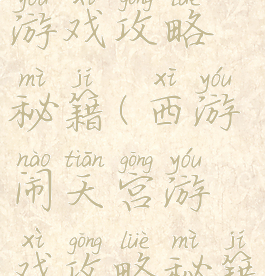 yóu xì gōng lüè
游戏攻略
mì jí xī yóu
秘籍(西游
nào tiān gōng yóu
闹天宫游
xì gōng lüè mì jí
戏攻略秘籍